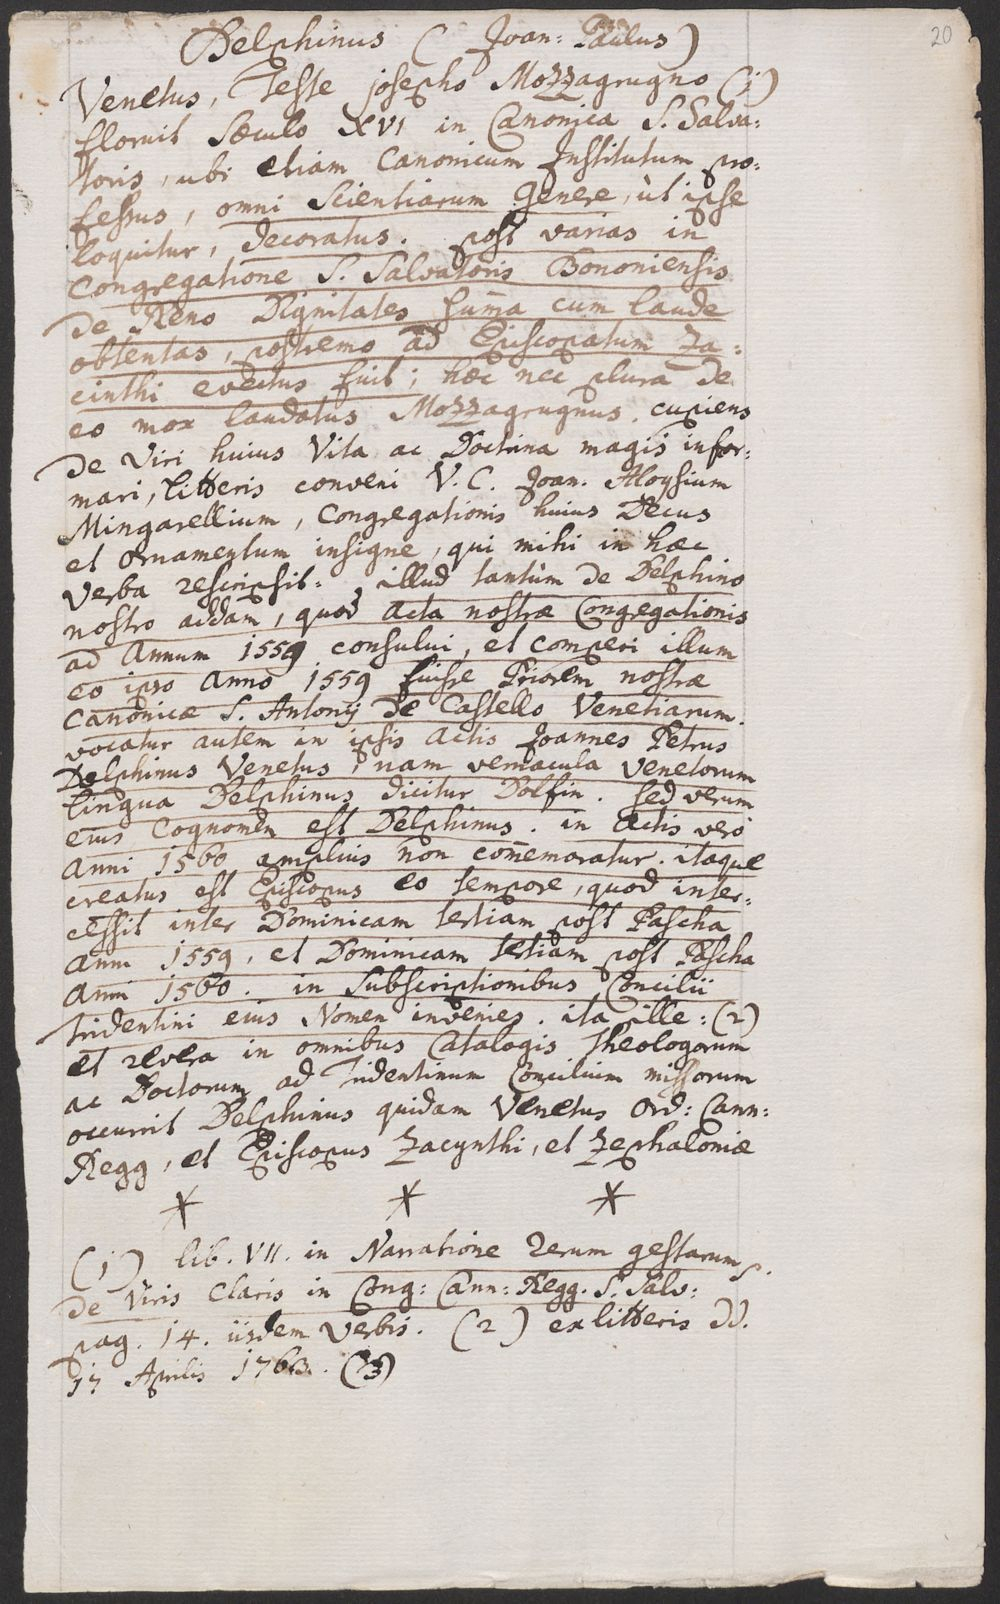 20
Delphinus ( Joan: Paulus )
Venetus, Teste josepho Mozzagrugno (1)
floruit Sæculo XVI in Canonica S. Salva:
toris, ubi etiam Canonicum Institutum pro:
fessus, omni Scientiarum Genere, ut ipse
loquitur, decoratus. post varias in
Congregatione S. Salvatoris Bononiensis
de Reno Dignitates sum̄a cum laude
obtentas, postremo ad Episcopatum Za:
cinthi evectus fuit; hæc nec plura de
eo mox laudatus Mozzagrugnus. cupiens
de Viri huius Vita ac Doctrina magis infor:
mari, litteris conveni V. C. Joan. Aloysium
Mingarellium, Congregationis huius Decus
et ornamentum insigne, qui mihi in hæc
verba rescripsit: illud tantùm de Delphino
nostro addam, quod Acta nostræ Congregationis
ad Annum 1559 consului, et comperi illum
eo ipso Anno 1559 fuisse Priorem nostræ
Canonicæ S. Antonij de Castello Venetiarum.
vocatur autem in ipsis Actis Joannes Petrus
Delphinus Venetus, nam vernacula Venetorum
lingua Delphinus dicitur Dolfin. sed verum
eius Cognomen est Delphinus. in Actis verò
Anni 1560 amplius non com̄emoratur. itaque
creatus est Episcopus eo tempore, quod inter:
cessit inter Dominicam tertiam post Pascha
Anni 1559, et Dominicam tertiam post Pascha
Anni 1560. in Subscriptionibus Concilii
tridentini eius Nomen invenies. ita ille: (2)
et revera in omnibus Catalogis Theologorum
ac Doctorum ad Tridentinum Concilium missorum
occurrit Delphinus quidam Venetus Ord: Cann:
Regg, et Episcopus Zacynthi, et Zephaloniæ
* * *
(1) lib. VII. in Narratione rerum gestarum
de Viris Claris in Cong: Cann: Regg. S. Salv:
pag. 14. iisdem verbis. (2) ex litteris dd.
17 Aprilis 1763. (3)